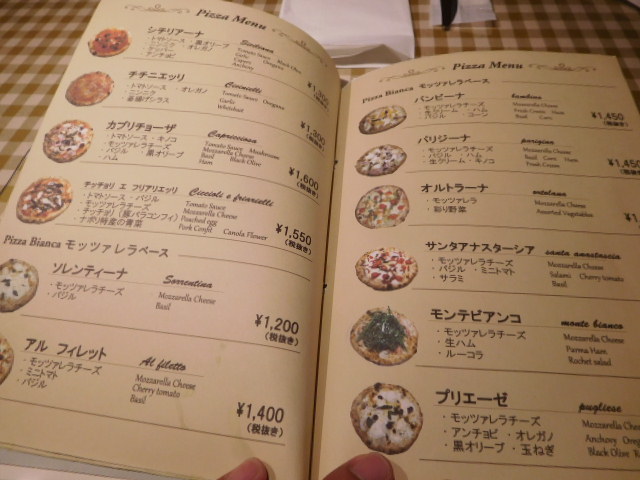 Pizza Menu
シチリアーナ
Siciliana
・トマトソース ・黒オリーブ
・ニンニク ・オレガノ
・アンチョビ
Tomato Sauce Black Olive
Garlic
Oregano
Anchovy
チチニエッリ
Cicinielli
・トマトソース ・オレガノ
・ニンニク
・釜揚げシラス
Tomato Sauce Oregano
Garlic
Whitebait
¥1,300
カプリチョーザ
Capricciosa
・トマトソース ・キノコ
・モッツァレラチーズ
・バジル ・黒オリーブ
・ハム
Tomato Sauce Mushroom
Mozzarella Cheese
Basil Black Olive
Ham
¥1,600
(税抜き)
チッチョリ エ フリアリエッリ
Ciccioli e friarielli
・トマトソース ・バジル
・モッツァレラチーズ
・チッチョリ(豚バラコンフィ)
・ナポリ特産の青菜
Tomato Sauce
Mozzarella Cheese
Poached egg
Pork Confit Canola Flower
¥1,550
(税抜き)
Pizza Bianca モッツァレラベース
ソレンティーナ
Sorrentina
・モッツァレラチーズ
・バジル
Mozzarella Cheese
Basil
¥1,200
(税抜き)
アル フィレット
Al filetto
・モッツァレラチーズ
・ミニトマト
・バジル
Mozzarella Cheese
Cherry tomato
Basil
¥1,400
(税抜き)
Pizza Menu
Pizza Bianca モッツァレラベース
バンビーナ
bambina
・モッツァレラチーズ
・生クリーム ・ハム
・バジル ・コーン
Mozzarella Cheese
Fresh Cream Ham
Basil Corn
¥1,450
(税抜き)
パリジーナ
parigina
・モッツァレラチーズ
・バジル ・ハム
・生クリーム ・キノコ
Mozzarella Cheese
Basil Ham
Fresh Cream
(税抜き)
オルトラーナ
ortolana
・モッツァレラ
・彩り野菜
Mozzarella Cheese
Assorted Vegetables
サンタアナスターシア
santa anastascia
・モッツァレラチーズ
・バジル ・ミニトマト
・サラミ
Mozzarella Cheese
Salami Cherry tomato
Basil
モンテビアンコ
monte bianco
・モッツァレラチーズ
・生ハム
・ルーコラ
Mozzarella Cheese
Parma Ham
Rochet salad
プリエーゼ
pugliese
・モッツァレラチーズ
・アンチョビ ・オレガノ
・黒オリーブ ・玉ねぎ
Mozzarella
Anchovy
Black Olive